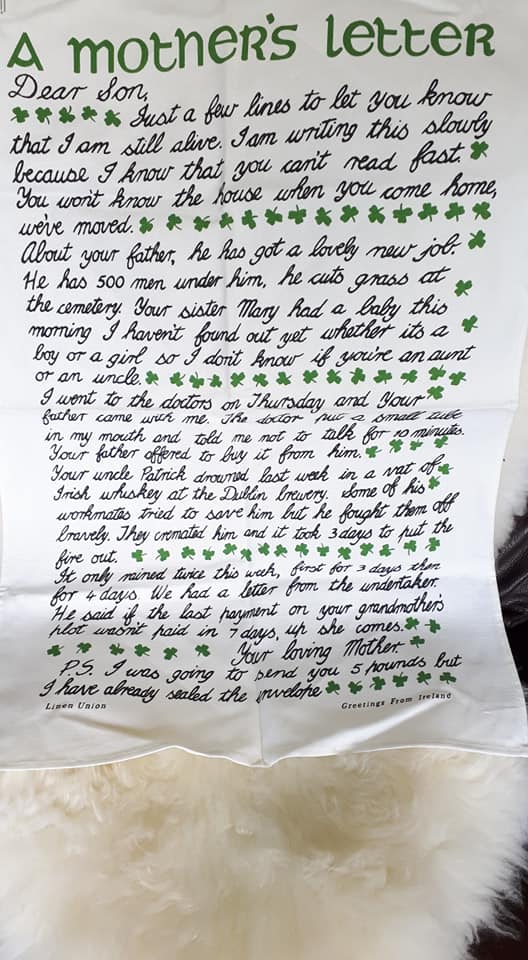 A mother's letter
Dear Son,
Just a few lines to let you know
that I am still alive. I am writing this slowly
because I know that you can't read fast.
You won't know the house when you come home,
we've moved.
About your father, he has got a lovely new job.
He has 500 men under him, he cuts grass at
the cemetery. Your sister Mary had a baby this
morning I haven't found out yet whether its a
boy or a girl so I don't know if you're an aunt
or an uncle.
I went to the doctors on Thursday and your
father came with me. The doctor put a small tube
in my mouth and told me not to talk for 10 minutes.
Your father offered to buy it from him.
Your uncle Patrick drowned last week in a vat of
Irish whiskey at the Dublin brewery. Some of his
workmates tried to save him but he fought them off
bravely. They cremated him and it took 3 days to put the
fire out.
It only rained twice this week, first for 3 days then
for 4 days. We had a letter from the undertaker.
He said if the last payment on your grandmother's
plot wasn't paid in 7 days, up she comes.
Your loving Mother
P.S. I was going to send you 5 pounds but
I have already sealed the envelope
Linen Union Greetings From Ireland